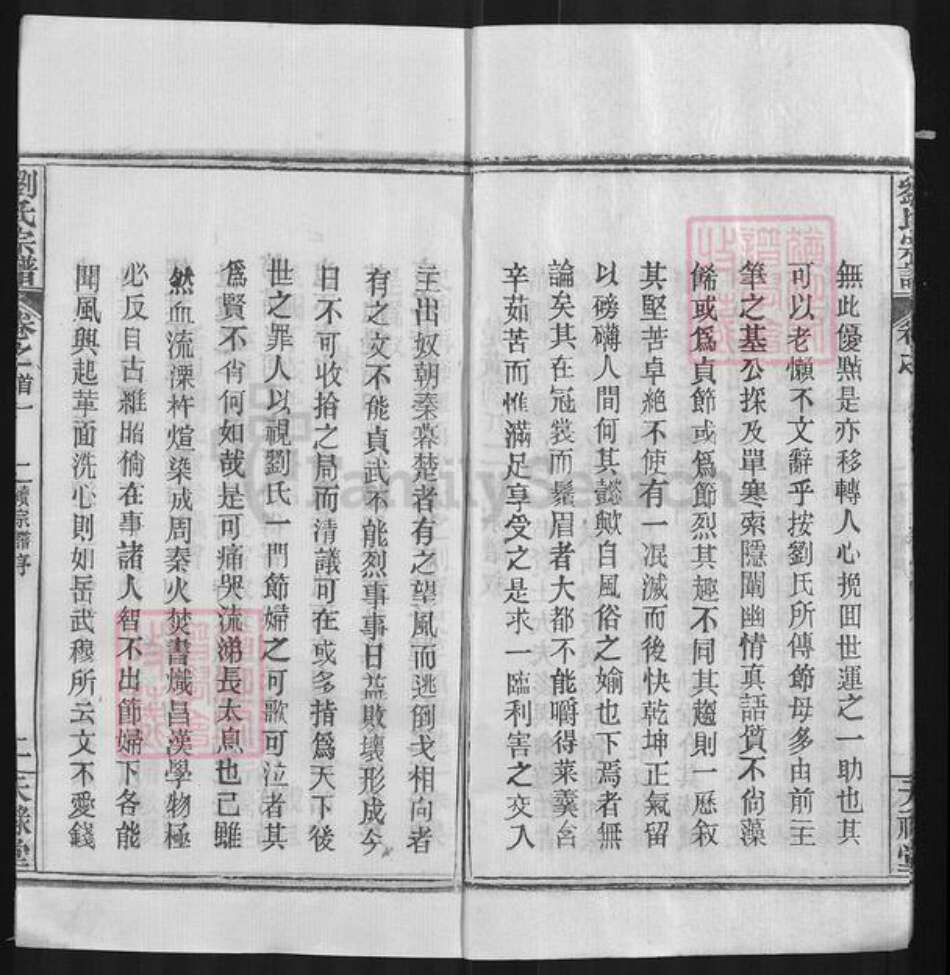 無此優點是亦移轉人心挽囬世運之一助也其
可以老懶不文辭乎按劉氏所傳節母多由前主
筆之基公採及單寒索隱闡幽情真語質不尙藻
餙或爲貞節或爲節烈其趣不同其趨則一歷叙
其堅苦卓絶不使有一泯滅而後快乾坤正氣留
以磅礡人間何其懿歟自風俗之媮也下焉者無
論矣其在冠裳而鬚眉者大都不能嚼得菜羹含
辛茹苦而惟滿足享受之是求一臨利害之交入
主出奴朝秦暮楚者有之望風而逃倒戈相向者
有之文不能貞武不能烈事事日益敗壞形成今
日不可收拾之局而清議可在或多指爲天下後
世之罪人以視劉氏一門節婦之可歌可泣者其
爲賢不肖何如哉是可痛哭流涕長太息也已雖
然血流漂杵煊染成周秦火焚書熾昌漢學物極
必反自古維昭倘在事諸人智不出節婦下各能
聞風興起革面洗心則如岳武穆所云文不愛錢
劉氏宗譜
卷之首一
二續宗譜序
二
天祿堂